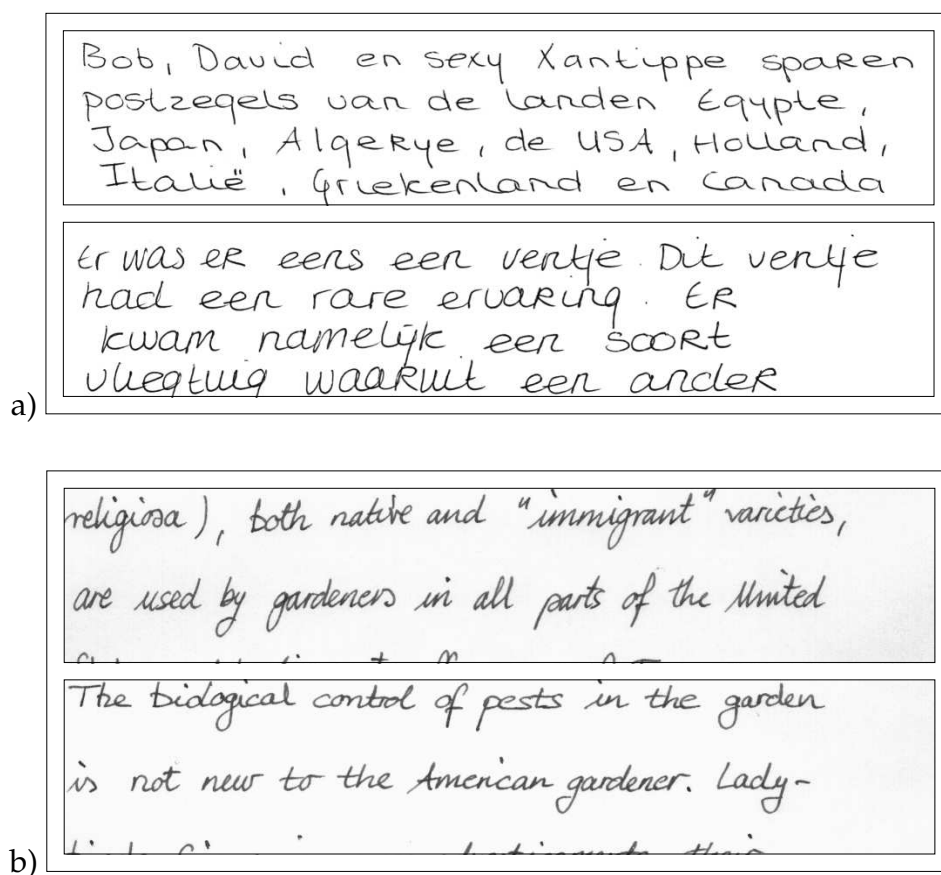 Bob, David en sexy Xantippe sparen
postzegels van de landen Egypte,
Japan, Algerye, de USA, Holland,
Italië, Griekenland en Canada
Er was er eens een ventje. Dit ventje
had een rare ervaring. Er
kwam namelijk een soort
vliegtuig waaruit een ander
a)
religiosa), both native and "immigrant" varieties,
are used by gardeners in all parts of the United
The biological control of pests in the garden
is not new to the American gardener. Lady-
b)